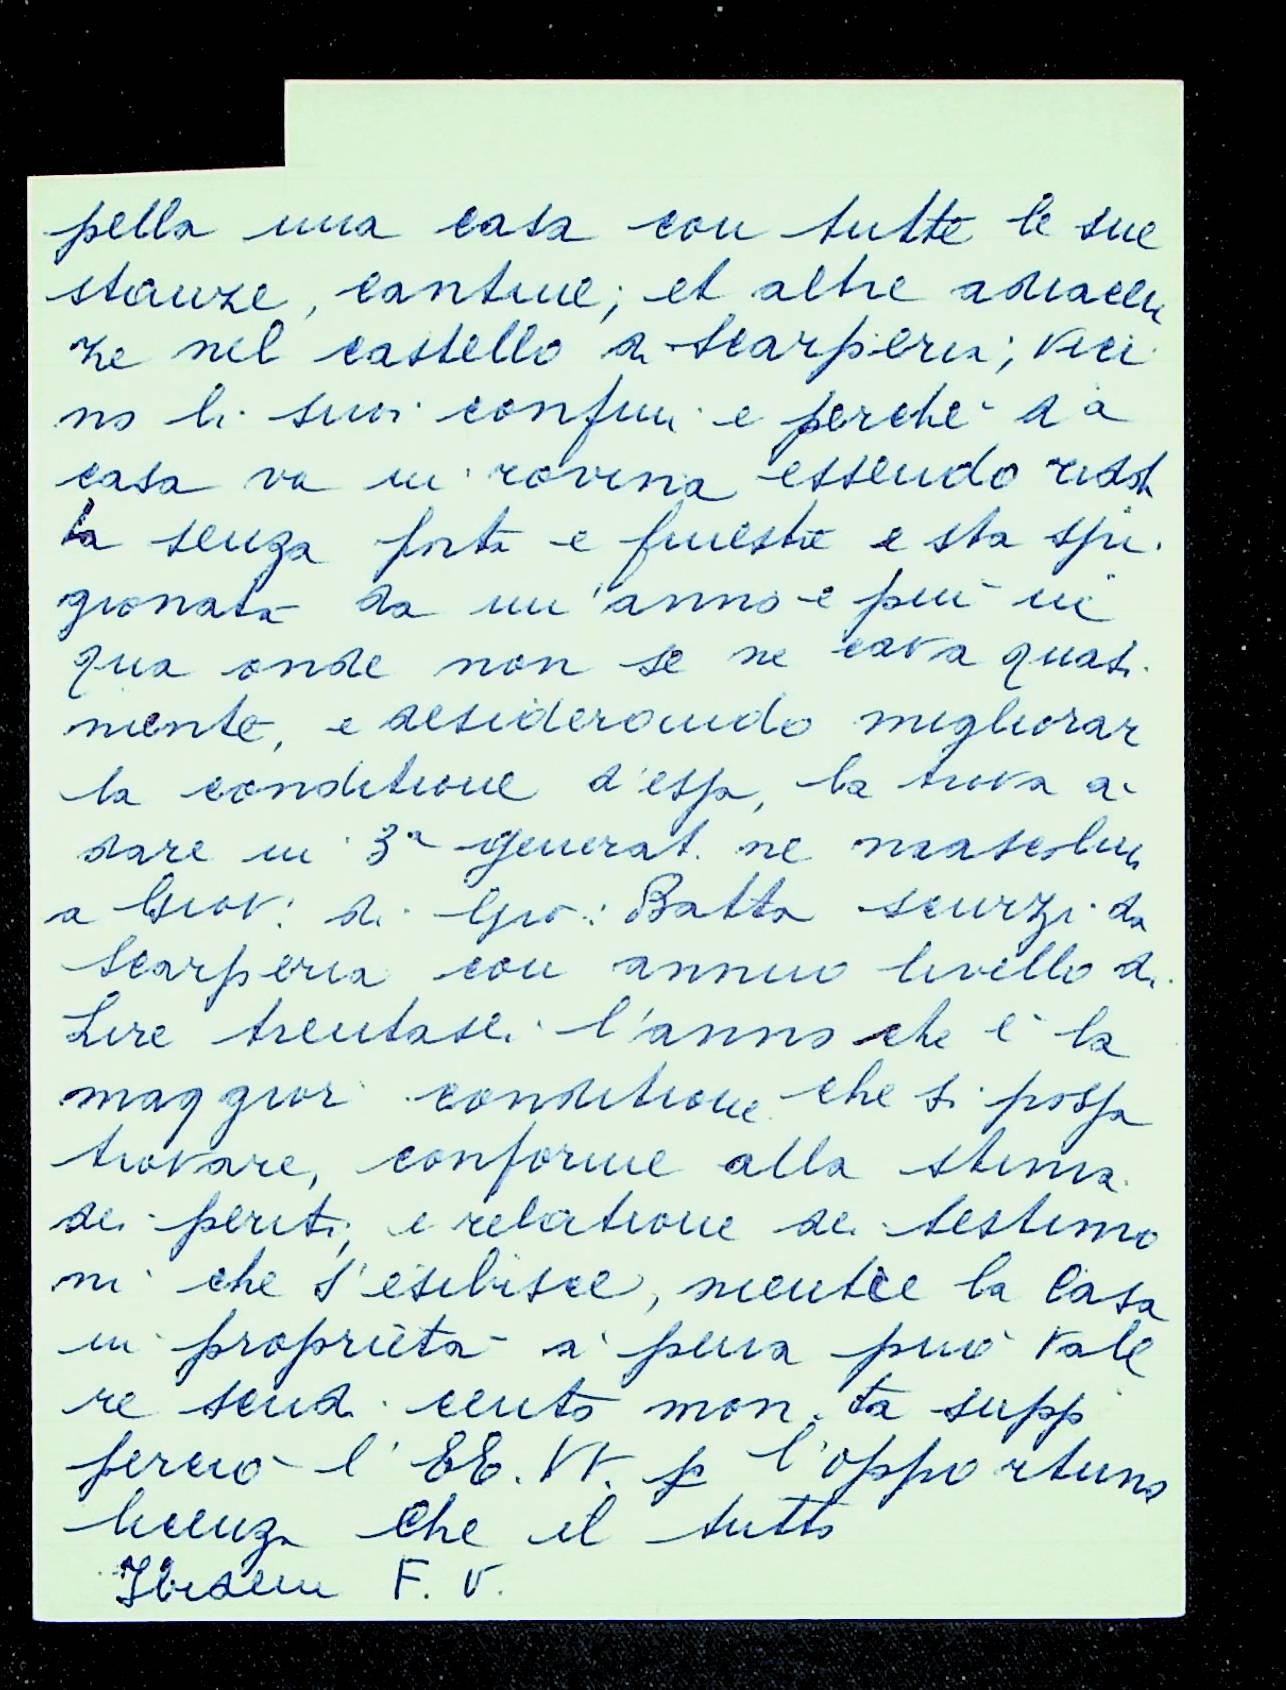 pella una casa con tutte le sue
stanze, cantine; et altre adiacen
ze nel castello di Scarperia; vici
no li suoi confini e perché d a
casa va in rovina essendo ridot
ta senza porta e finestre e sta spi
gionata da un'anno e più in
qua onde non se ne cava quasi
niente, e desiderando migliorar
la conditione d'essa, la trova a
dare in 3a generat. ne mascolina
a Giov: di Gio: Batta scurzi da
Scarperia con annuo livello di
Lire trentasei l'anno che è la
maggior conditione che si possa
trovare, conforme alla stima
dei periti, e relatione dei testimo
ni che s'esibisce, mentre la Casa
in proprietà a pena può vale
re scudi cento mon. ta supp
perciò l' EE. VV. p l'opportuna
licenza che il tutto
Ibidem F. V.